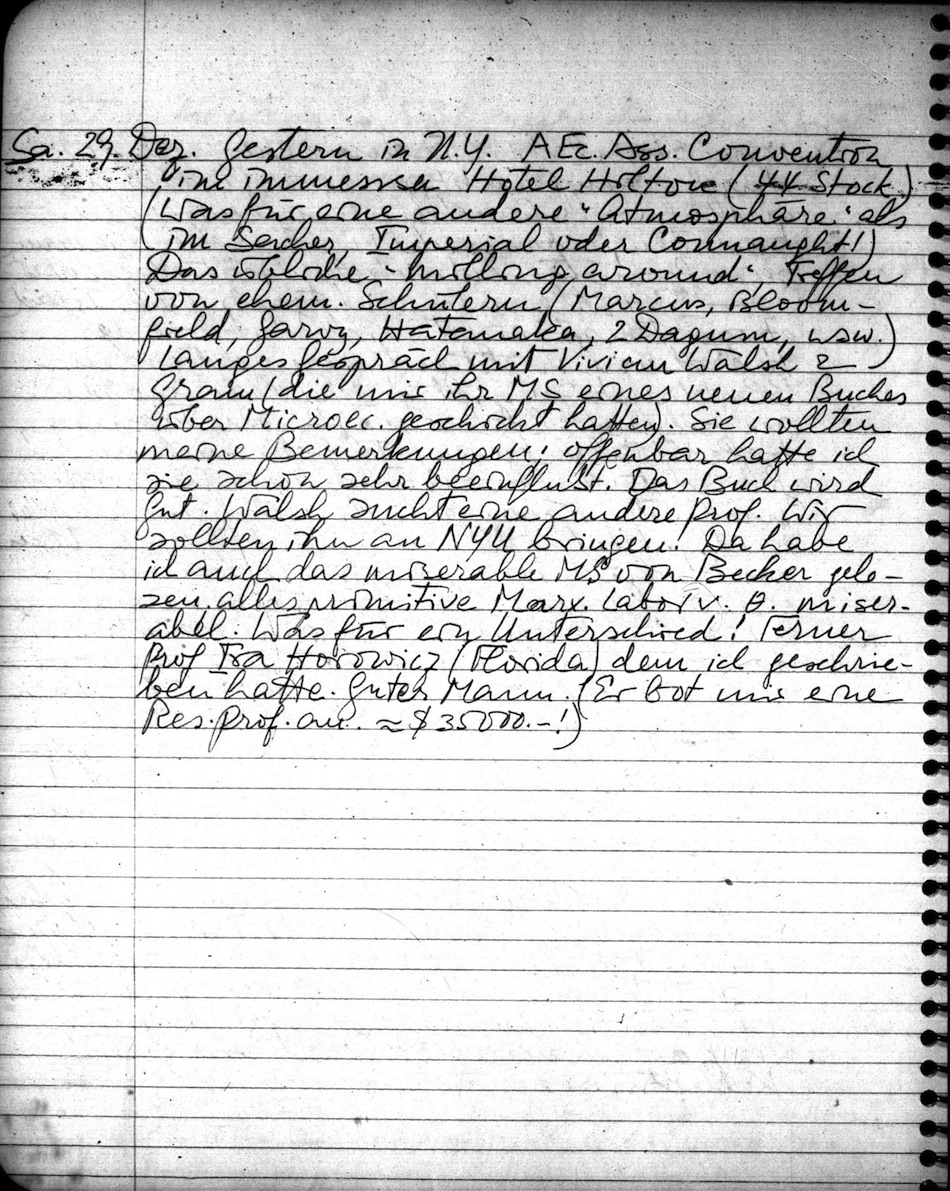 Sa. 29. Dez. Gestern in N.Y. A Ec. Ass. Convention
im immensen Hotel Hilton (44 Stock)
(Was für eine andere "Atmosphäre" als
im Sacher, Imperial oder Connaught!)
Das übliche "milling around". Treffen
von ehem. Schülern (Marcus, Bloom-
field, Garvy, Hatanaka, 2 Dagum, usw.)
Langes Gespräch mit Vivian Walsh &
Gram (die mir ihr MS eines neuen Buches
über Microec. geschickt hatten). Sie wollten
meine Bemerkungen; offenbar hatte ich
sie schon sehr beeinflusst. Das Buch wird
gut. Walsh sucht eine andere Prof. Wir
sollten ihn an NYU bringen! Da habe
ich auch das miserable MS von Becker gele-
sen. alles primitive Marx. Labor v. θ. miser-
abel. Was für ein Unterschied! Ferner
Prof Ira Horowicz (Florida) dem ich geschrie-
ben hatte. Guter Mann. (Er bot mir eine
Res. prof. an. ≈ $ 35000.-!)